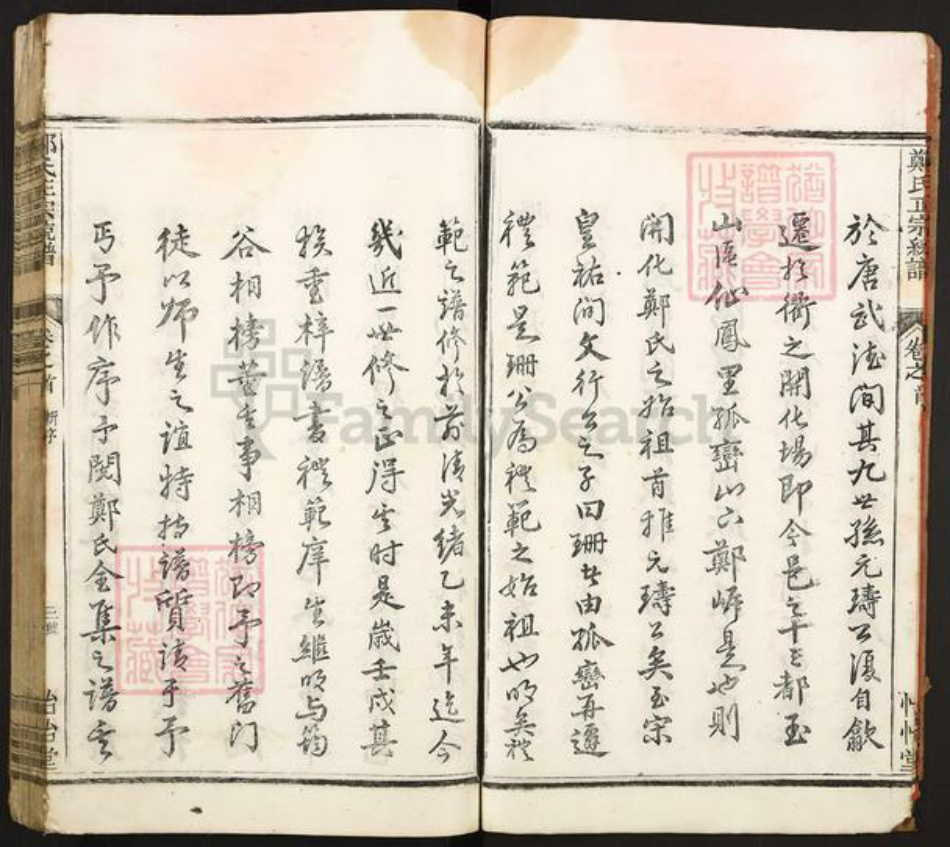 鄭氏正宗統譜
卷之首
怡怡堂
於唐武德間其九世孫元璹公復自歙
遷於衢之開化場即今邑之十三都玉
山區仙鳳里孤巒山下鄭㟁是也則
開化鄭氏之始祖首推元璹公矣至宋
皇祐間文行公之子曰珊者由孤巒再遷
禮範是珊公為禮範之始祖也明矣禮
範之譜修於前清光緒乙未年迄今
幾近一世修之正得其時是歲壬戌其
族重梓譜書禮範庠生繼明与筠
谷相榜董其事相榜即予之舊門
徒以師生之誼特持譜質請于予
丐予作序予閱鄭氏全集之譜
鄭氏正宗統譜
卷之首
新序
怡怡堂
FamilySearch